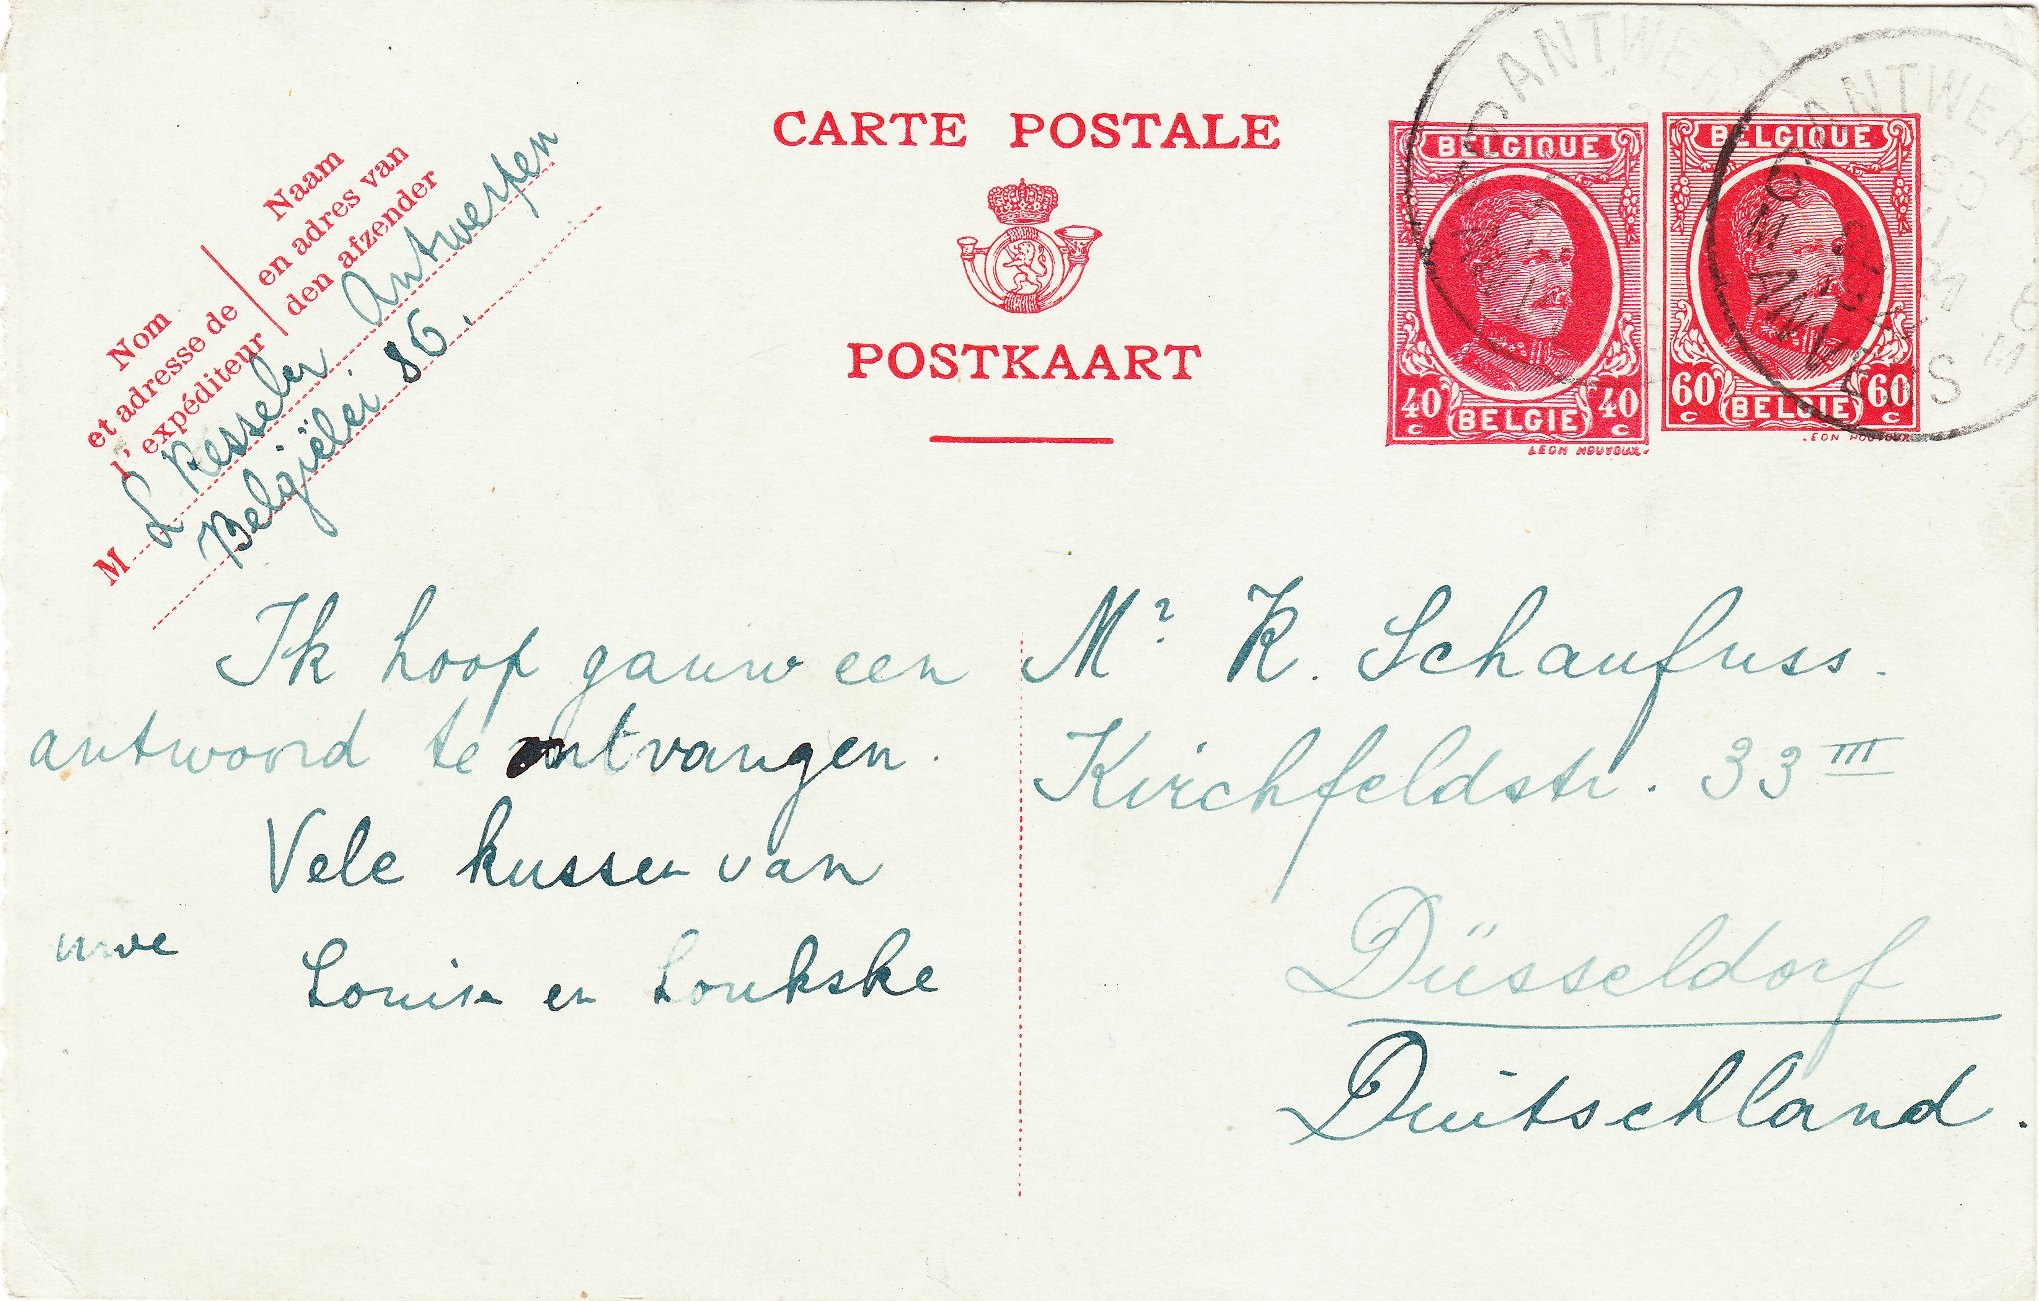 CARTE POSTALE
POSTKAART
Nom
et adresse de
l'expéditeur
Naam
en adres van
den afzender
M
L Kesseler Antwerpen
Belgiëlei. 86.
BELGIQUE
40 c 40 c
BELGIE
LEON HOUYOUX.
BELGIQUE
60 c 60 c
BELGIE
LEON HOUYOUX
ANTWER
ANTWER
6 M
30
VI
6 M
ANVERS
Ik hoop gauw een
antwoord te ontvangen.
Vele kussen van
uwe Louise en Loukske
Mr. K. Schaufuss.
Kirchfeldstr. 33 III
Düsseldorf
Duitschland.